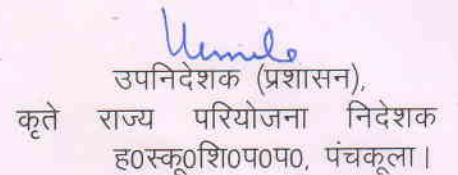 उपनिदेशक (प्रशासन),
कृते राज्य परियोजना निदेशक
ह०स्कू०शि०प०प०, पंचकूला।